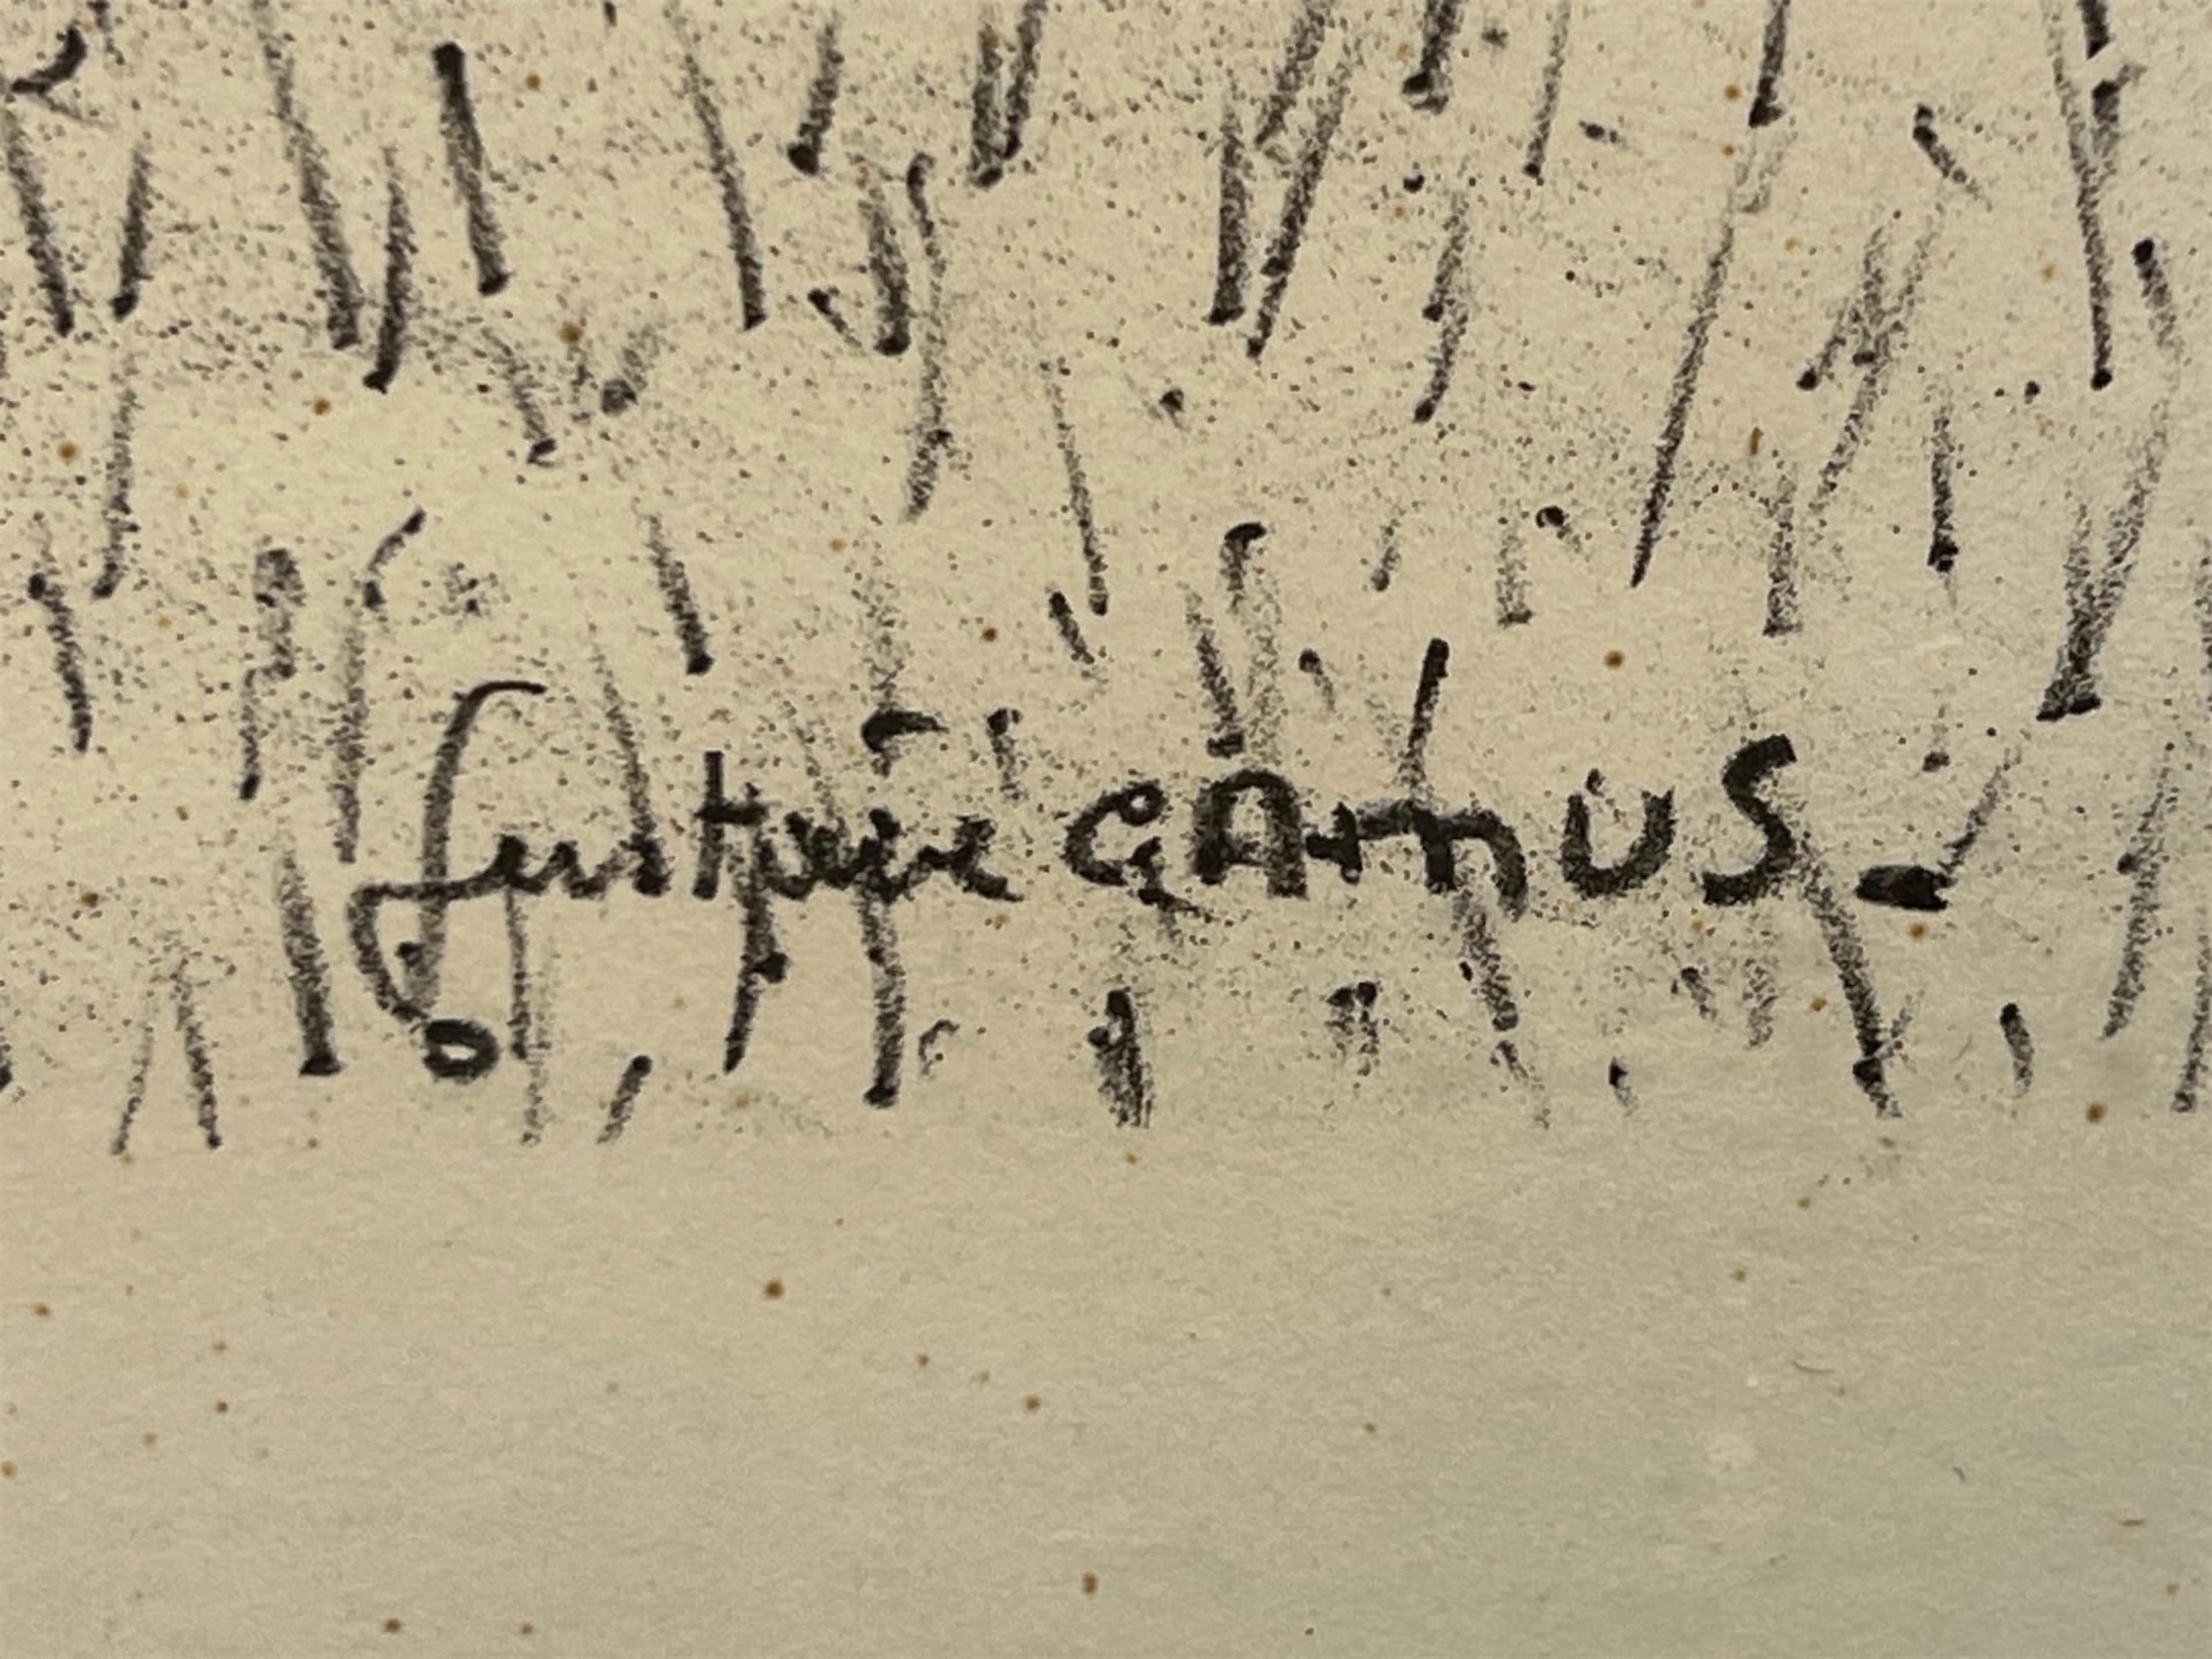 Gustave CAMUS